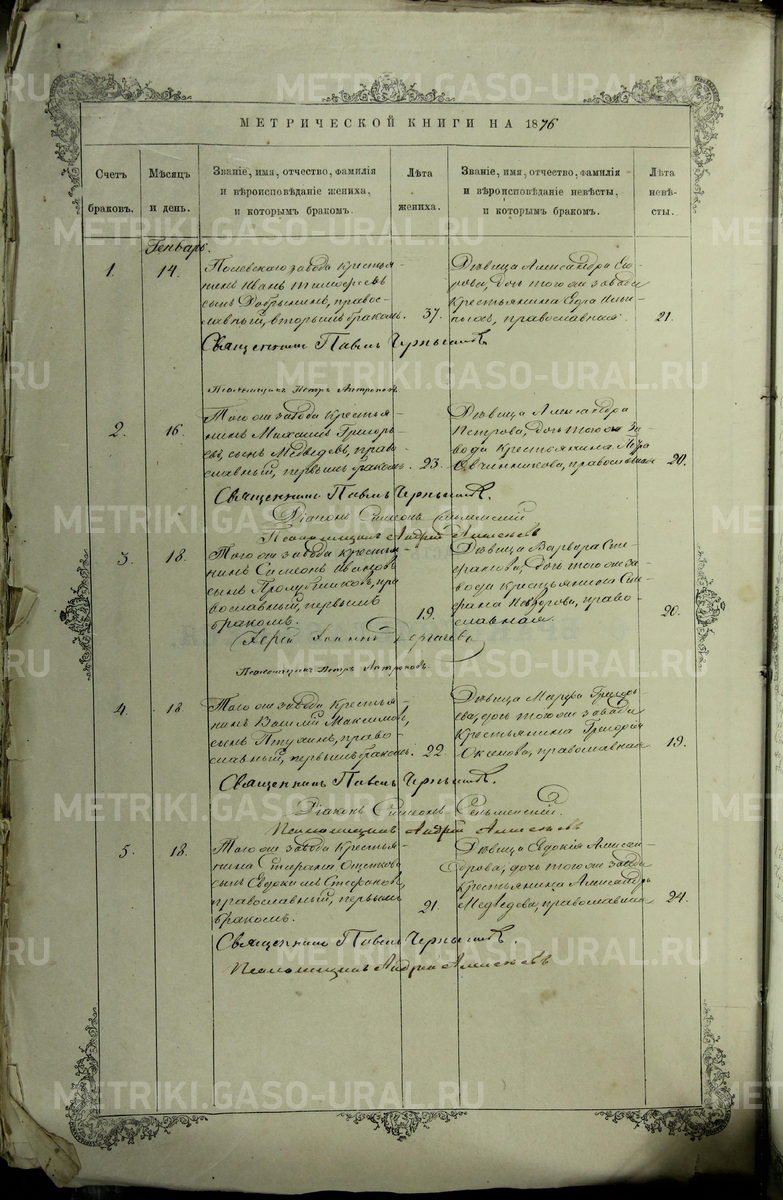 МЕТРИЧЕСКОЙ КНИГИ НА 1876
Счетъ браковъ.
Мѣсяцъ и день.
Званіе, имя, отчество, фамилія и вѣроисповѣданіе жениха, и которымъ бракомъ.
Лѣта жениха.
Званіе, имя, отчество, фамилія и вѣроисповѣданіе невѣсты, и которымъ бракомъ.
Лѣта невѣсты.
Генварь.
1.
14.
Полевскаго завода крестья-
нинъ Иванъ Тимофеевъ
сынъ Добрынинъ, правос-
лавный, вторымъ бракомъ.
37.
Дѣвица Александра Его-
рова, дочь того же завода
крестьянина Егора
православная.
21.
Священникъ Павелъ Чернышевъ
Псаломщикъ Петръ Антроповъ
2.
16.
Того же завода крестья-
нинъ Михаилъ Григорь-
евъ, сынъ Медведевъ, право-
славный, первымъ бракомъ.
23.
Дѣвица Александра
Петрова, дочь того же за-
вода крестьянина Петра
Овчинникова, православная
20.
Священникъ Павелъ Чернышевъ.
Діаконъ Симеонъ
Псаломщикъ Андрей Алексѣевъ
3.
18.
Того же завода крестья-
нинъ Симеонъ Ивановъ
сынъ пра-
вославный, первымъ
бракомъ.
19.
Дѣвица Варвара Сте-
фанова, дочь того же за-
вода крестьянина Сте-
фана право-
славная.
20.
Іерей Іоаннъ
Псаломщикъ Петръ Антроповъ
4.
18.
Того же завода крестья-
нинъ Василій Максимовъ,
сынъ право-
славный, первымъ бракомъ.
22.
Дѣвица Марфа Григорь-
ева, дочь того же завода
крестьянина Григорія
православная
19.
Священникъ Павелъ Чернышевъ.
Діаконъ Симеонъ
Псаломщикъ Андрей Алексѣевъ
5.
18.
Того же завода крестья-
нина Стефана
сынъ Евдокимъ Стефановъ,
православный, первымъ
бракомъ.
21.
Дѣвица Евдокія Алексан-
дрова, дочь того же завода
крестьянина Александра
Медведева, православная
24.
Священникъ Павелъ Чернышевъ.
Псаломщикъ Андрей Алексѣевъ
METRIKI.GASO-URAL.RU